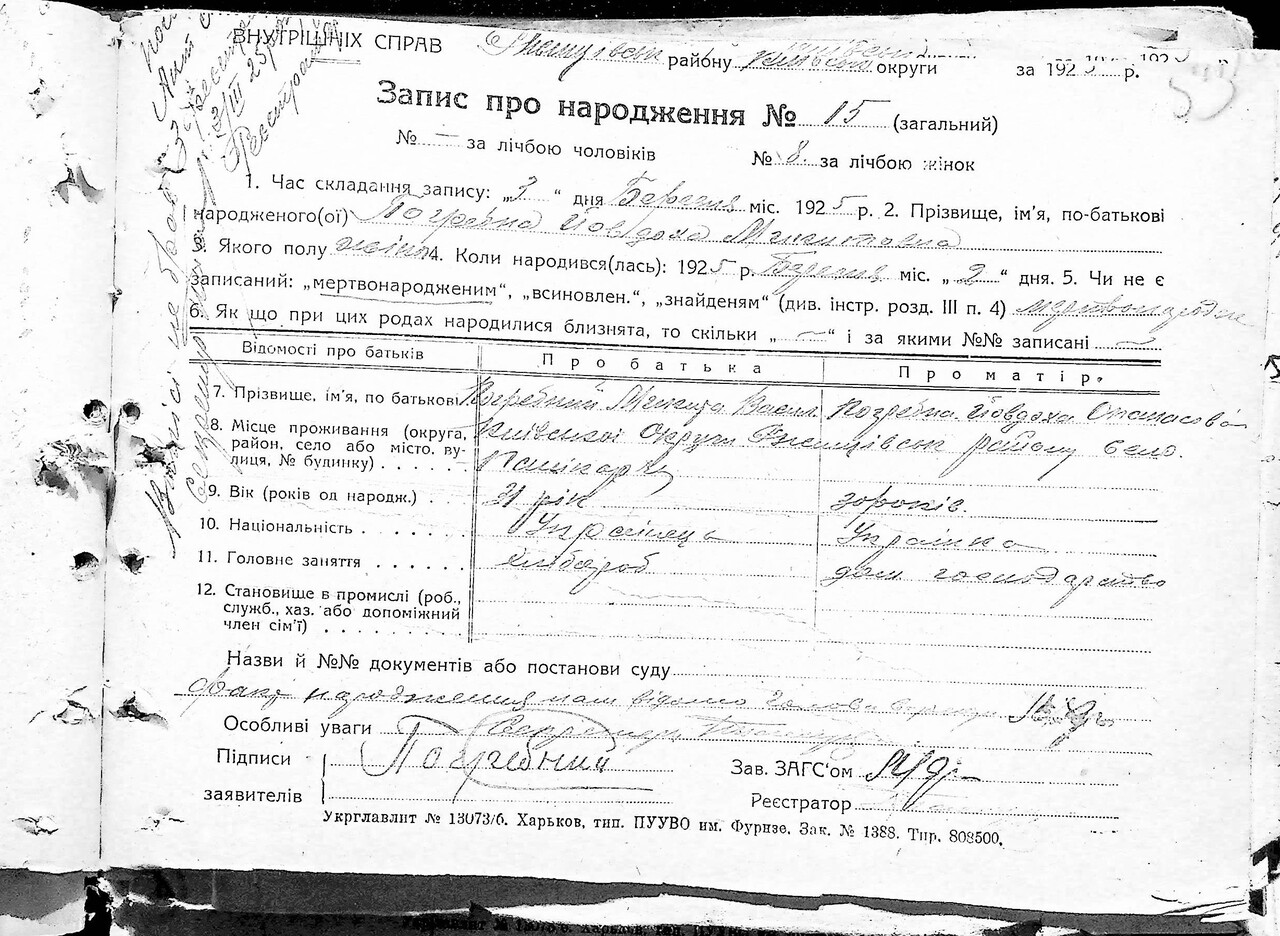 ВНУТРІШНІХ СПРАВ району округи за 1925 р.
Запис про народження № 15 (загальний)
№ — за лічбою чоловіків № 8 за лічбою жінок
1. Час складання запису: „3“ дня Березня міс. 1925 р. 2. Прізвище, ім'я, по-батькові
народженого(ої) Погребна Йовдоха Микитовна
3. Якого полу жіноч 4. Коли народився(лась): 1925 р. Березня міс. „2“ дня. 5. Чи не є
записаний: „мертвонародженим“, „всиновлен.“, „знайденям“ (див. інстр. розд. III п. 4)
6. Як що при цих родах народилися близнята, то скільки „—“ і за якими №№ записані —
Відомості про батьків Про батька Про матір.
7. Прізвище, ім'я, по батькові Погребний Микита Васил Погребна Йовдоха
8. Місце проживання (округа, район, село або місто, вулиця, № будинку) Київської Округи Ржищівськ району село
9. Вік (років од народж.) 31 рік 30 років.
10. Національність Українець Українка
11. Головне заняття Хлібороб дом господарство
12. Становище в промислі (роб., служб., хаз. або допоміжний член сім'ї)
Назви й №№ документів або постанови суду
Факт народження нам відомо Голова
Особливі уваги Секретарь
Підписи Погребний Зав. ЗАГС'ом
заявителів Реєстратор
Укрглавлит № 13073/б. Харьков, тип. ПУУВО им. Фрунзе. Зак. № 1388. Тир. 808500.